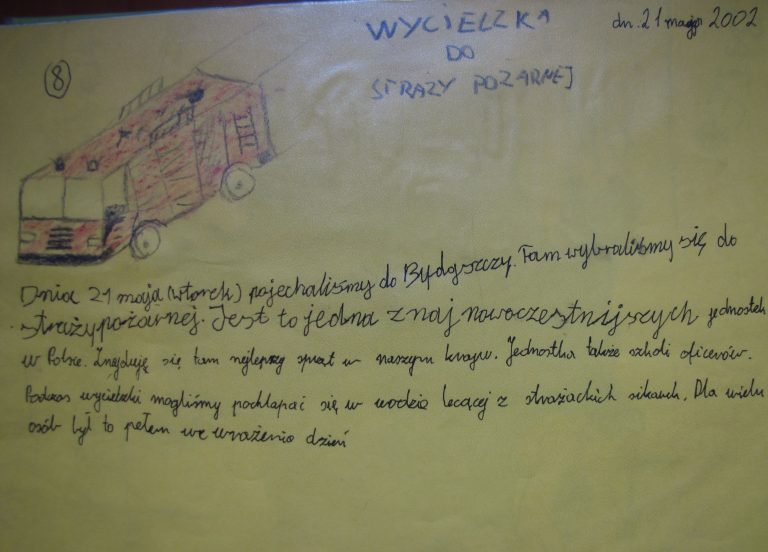 dn. 21 maja 2002
WYCIECZKA
DO
STRAŻY POŻARNEJ
8
Dnia 21 maja (wtorek) pojechaliśmy do Bydgoszczy. Tam wybraliśmy się do
straży pożarnej. Jest to jedna z naj nowocześnijszych jednostek
w Polsce. Znajduję się tam najlepszy sprzęt w naszym kraju. Jednostka także szkoli oficerów.
Podczas wycieczki mogliśmy pochlapać się w wodzie lecącej z strażackich sikawek. Dla wielu
osób był to pełem we wrażenia dzień